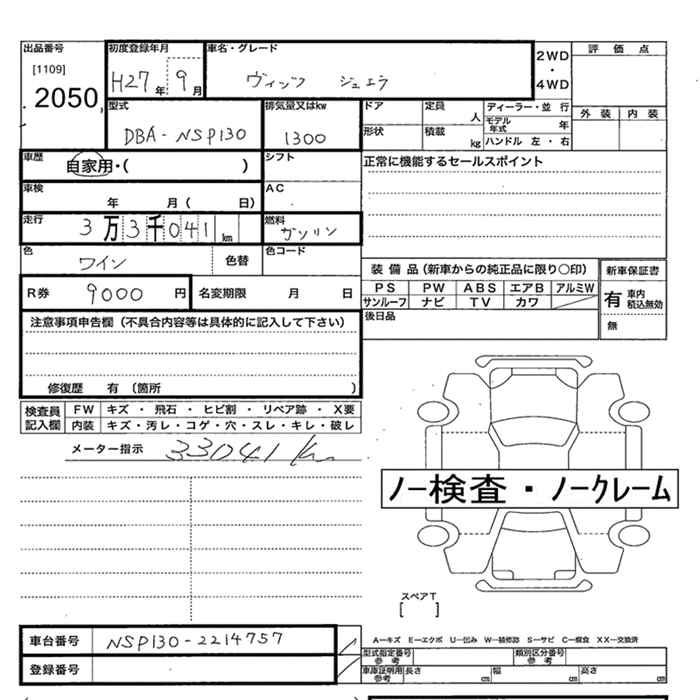 出品番号
[1109]
2050
初度登録年月
H27年 9月
車名・グレード
ヴィッツ ジュエラ
2WD
・
4WD
評価点
外装 内装
型式
DBA-NSP130
排気量又はkw
1300
ドア
定員 人
ディーラー・並行
モデル年式 年
形状
積載 kg
ハンドル 左・右
車歴
自家用・( )
シフト
正常に機能するセールスポイント
車検
年 月( 日)
AC
走行
3万3千041km
燃料
ガソリン
色
ワイン
色替
色コード
装備品(新車からの純正品に限り○印)
新車保証書
PS PW ABS エアB アルミW
サンルーフ ナビ TV カワ
有 車内積込無効
無
R券 9000 円
名変期限 月 日
後日品
注意事項申告欄(不具合内容等は具体的に記入して下さい)
修復歴 有 (箇所 )
検査員記入欄
FW キズ・飛石・ヒビ割・リペア跡・X要
内装 キズ・汚レ・コゲ・穴・スレ・キレ・破レ
メーター指示 33041km
ノー検査・ノークレーム
スペアT
[ ]
車台番号 NSP130-2214757
登録番号
A―キズ E―エクボ U―凹み W―補修跡 S―サビ C―腐食 XX―交換済
型式指定番号参考
類別区分番号参考
車庫証明用参考 長さ cm 幅 cm 高さ cm